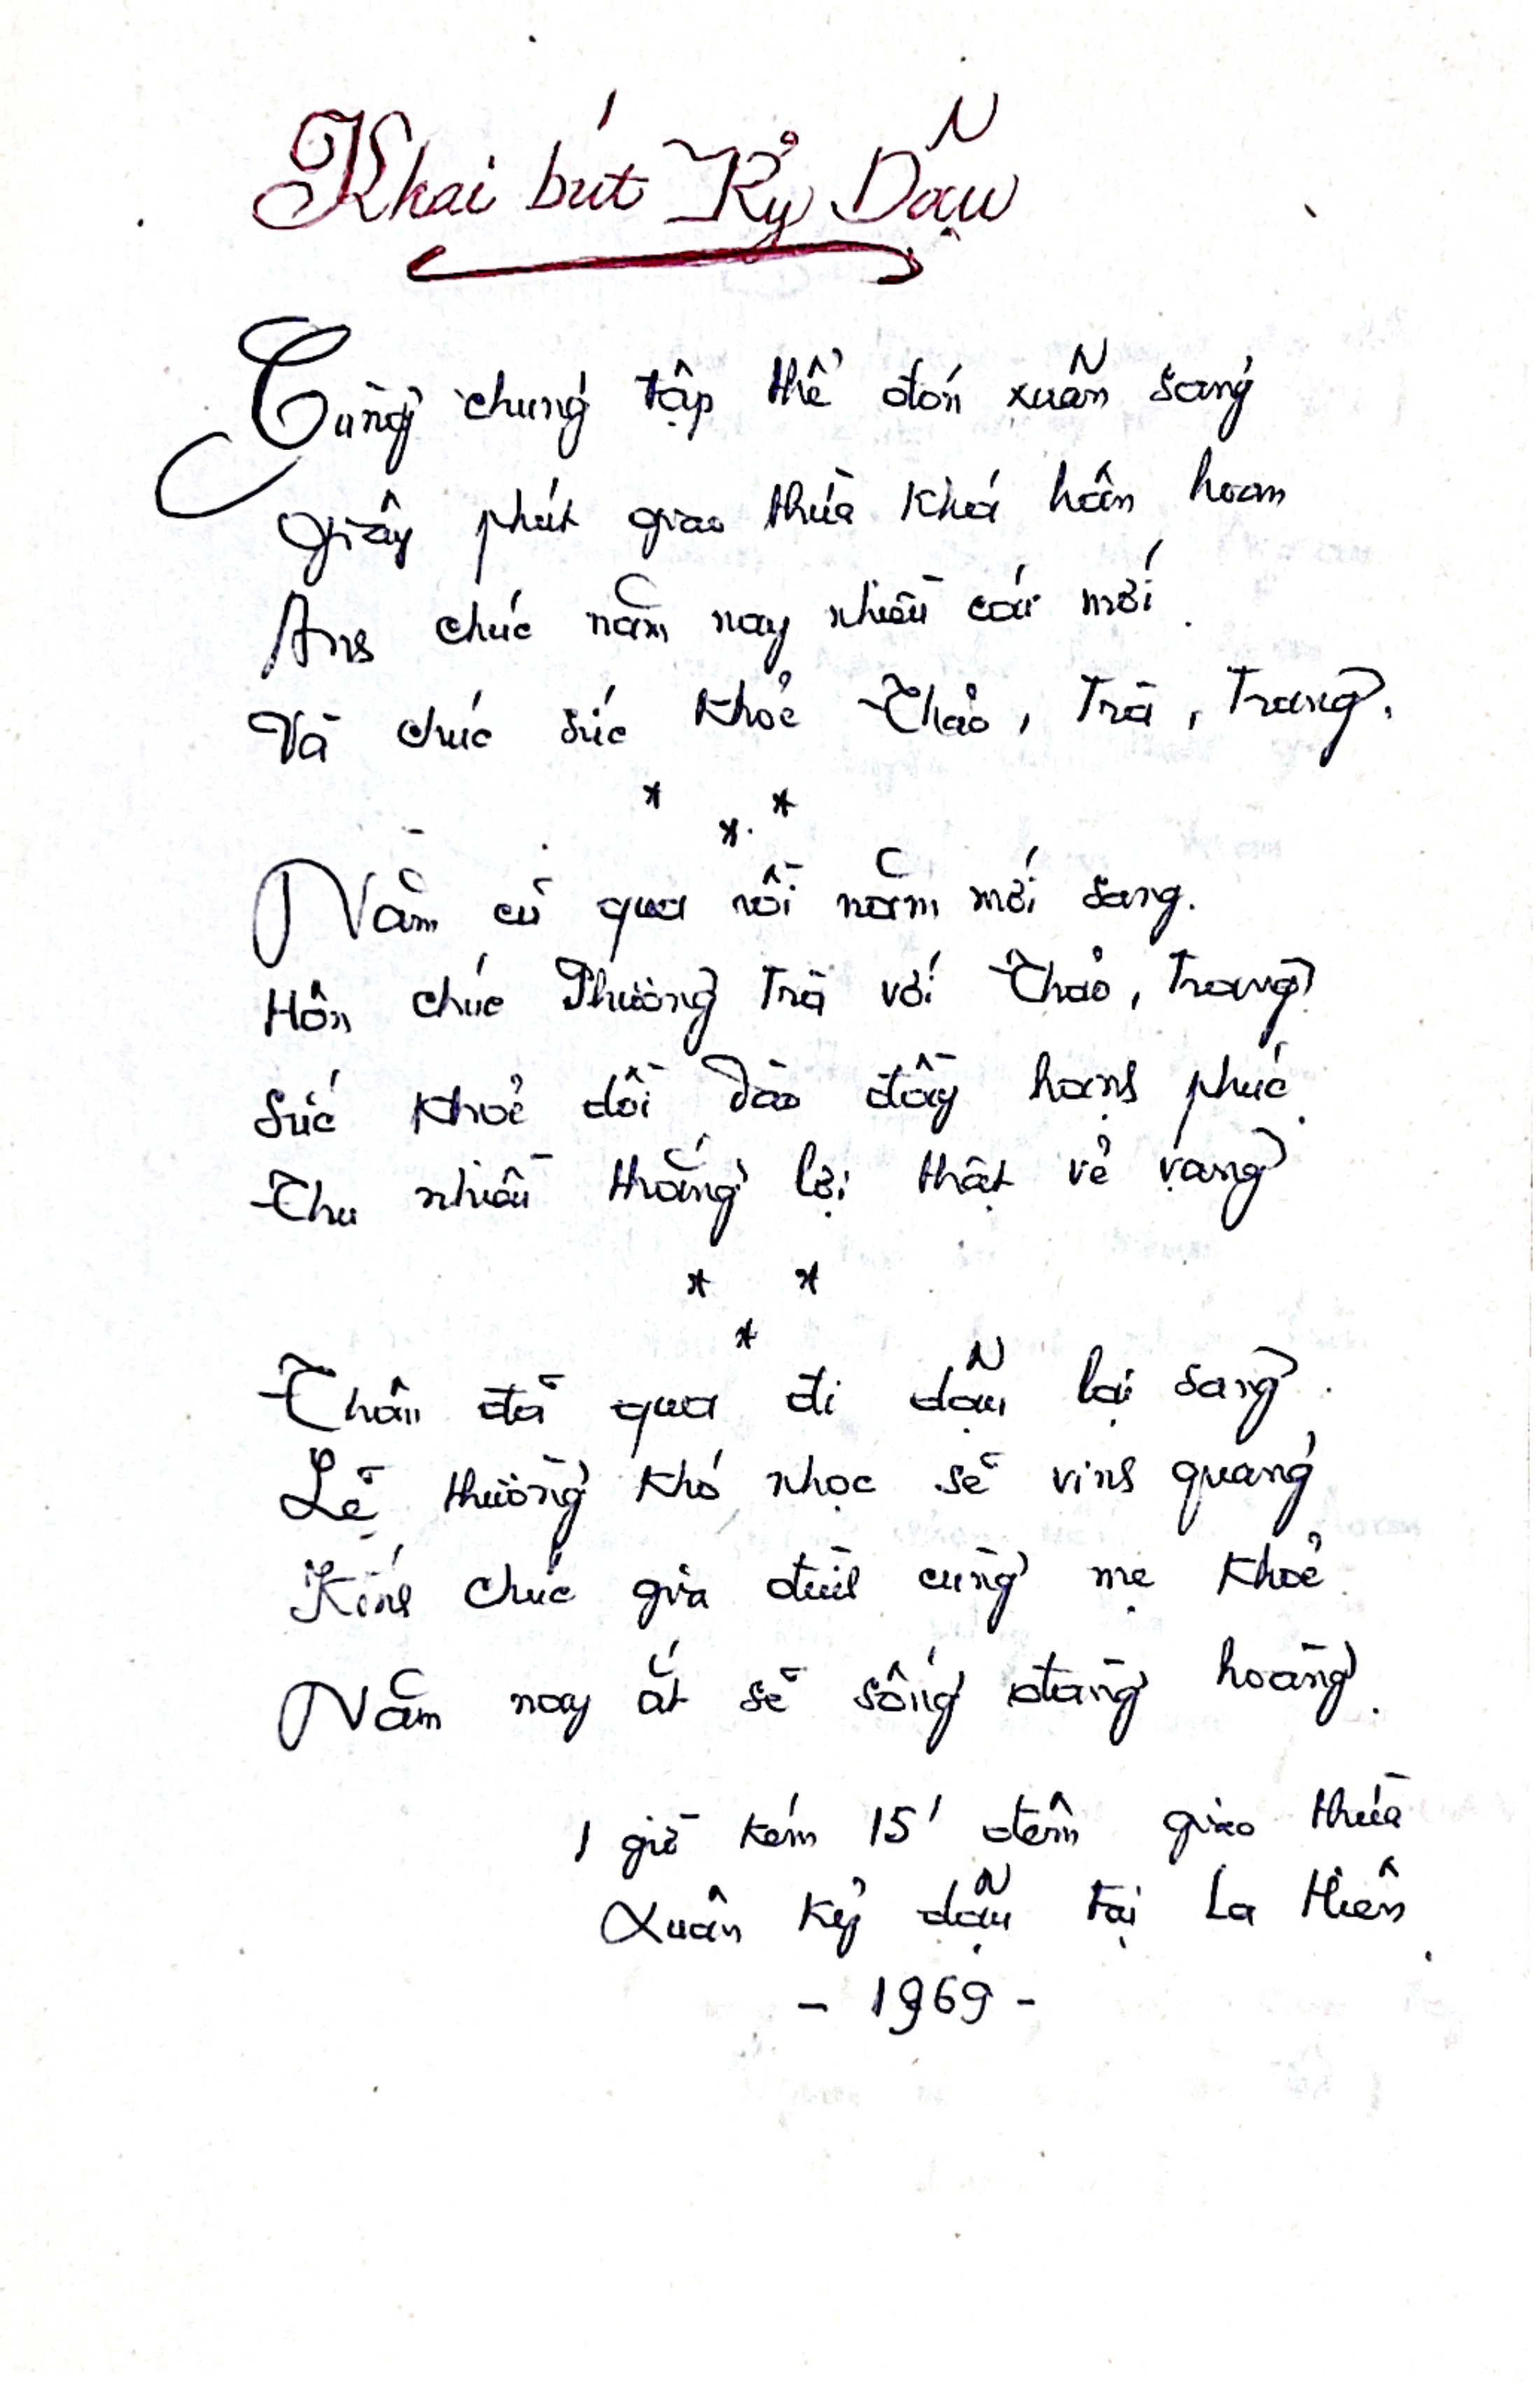 Khai bút Kỷ Dậu
Cùng chung tập thể đón xuân sang
Giây phút giao thừa khá hân hoan
Anh chúc năm nay nhiều cái mới.
Và chúc sức khỏe Thảo, Trà, Trang.
* * *
Năm cũ qua rồi năm mới sang.
Hôn chúc Phương Trà với Thảo, Trang
Sức khỏe dồi dào đầy hạnh phúc.
Thu nhiều thắng lợi thật vẻ vang
* * *
Thân đã qua đi dậu lại sang.
Lẽ thường khó nhọc sẽ vinh quang
Kính chúc gia đình cùng mẹ khỏe.
Năm nay ắt sẽ sống đàng hoàng.
1 giờ kém 15' đêm giao thừa
Xuân kỷ dậu tại La Hiên.
- 1969 -